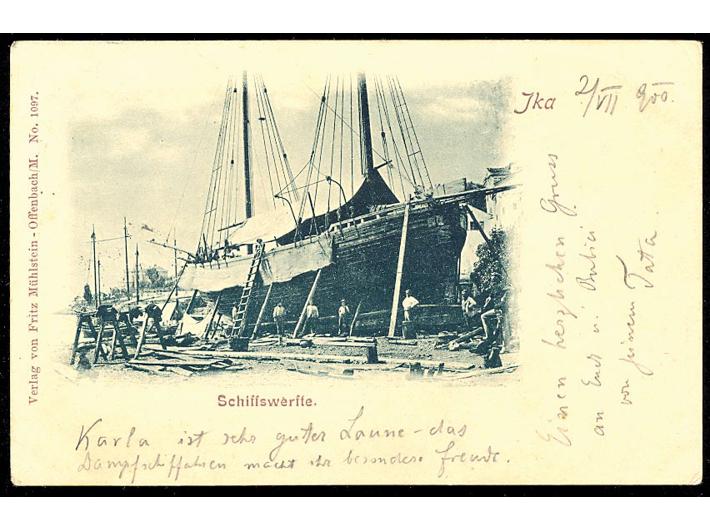 Verlag von Fritz Mühlstein - Offenbach/M. No. 1097.
Ika 2/VII 900.
Schiffswerfte.
Karla ist sehr guter Laune - das
Dampfschiffahren macht ihr besondere Freude.
Einen herzlichen Gruss
an Euch u. Bubici
von Tata